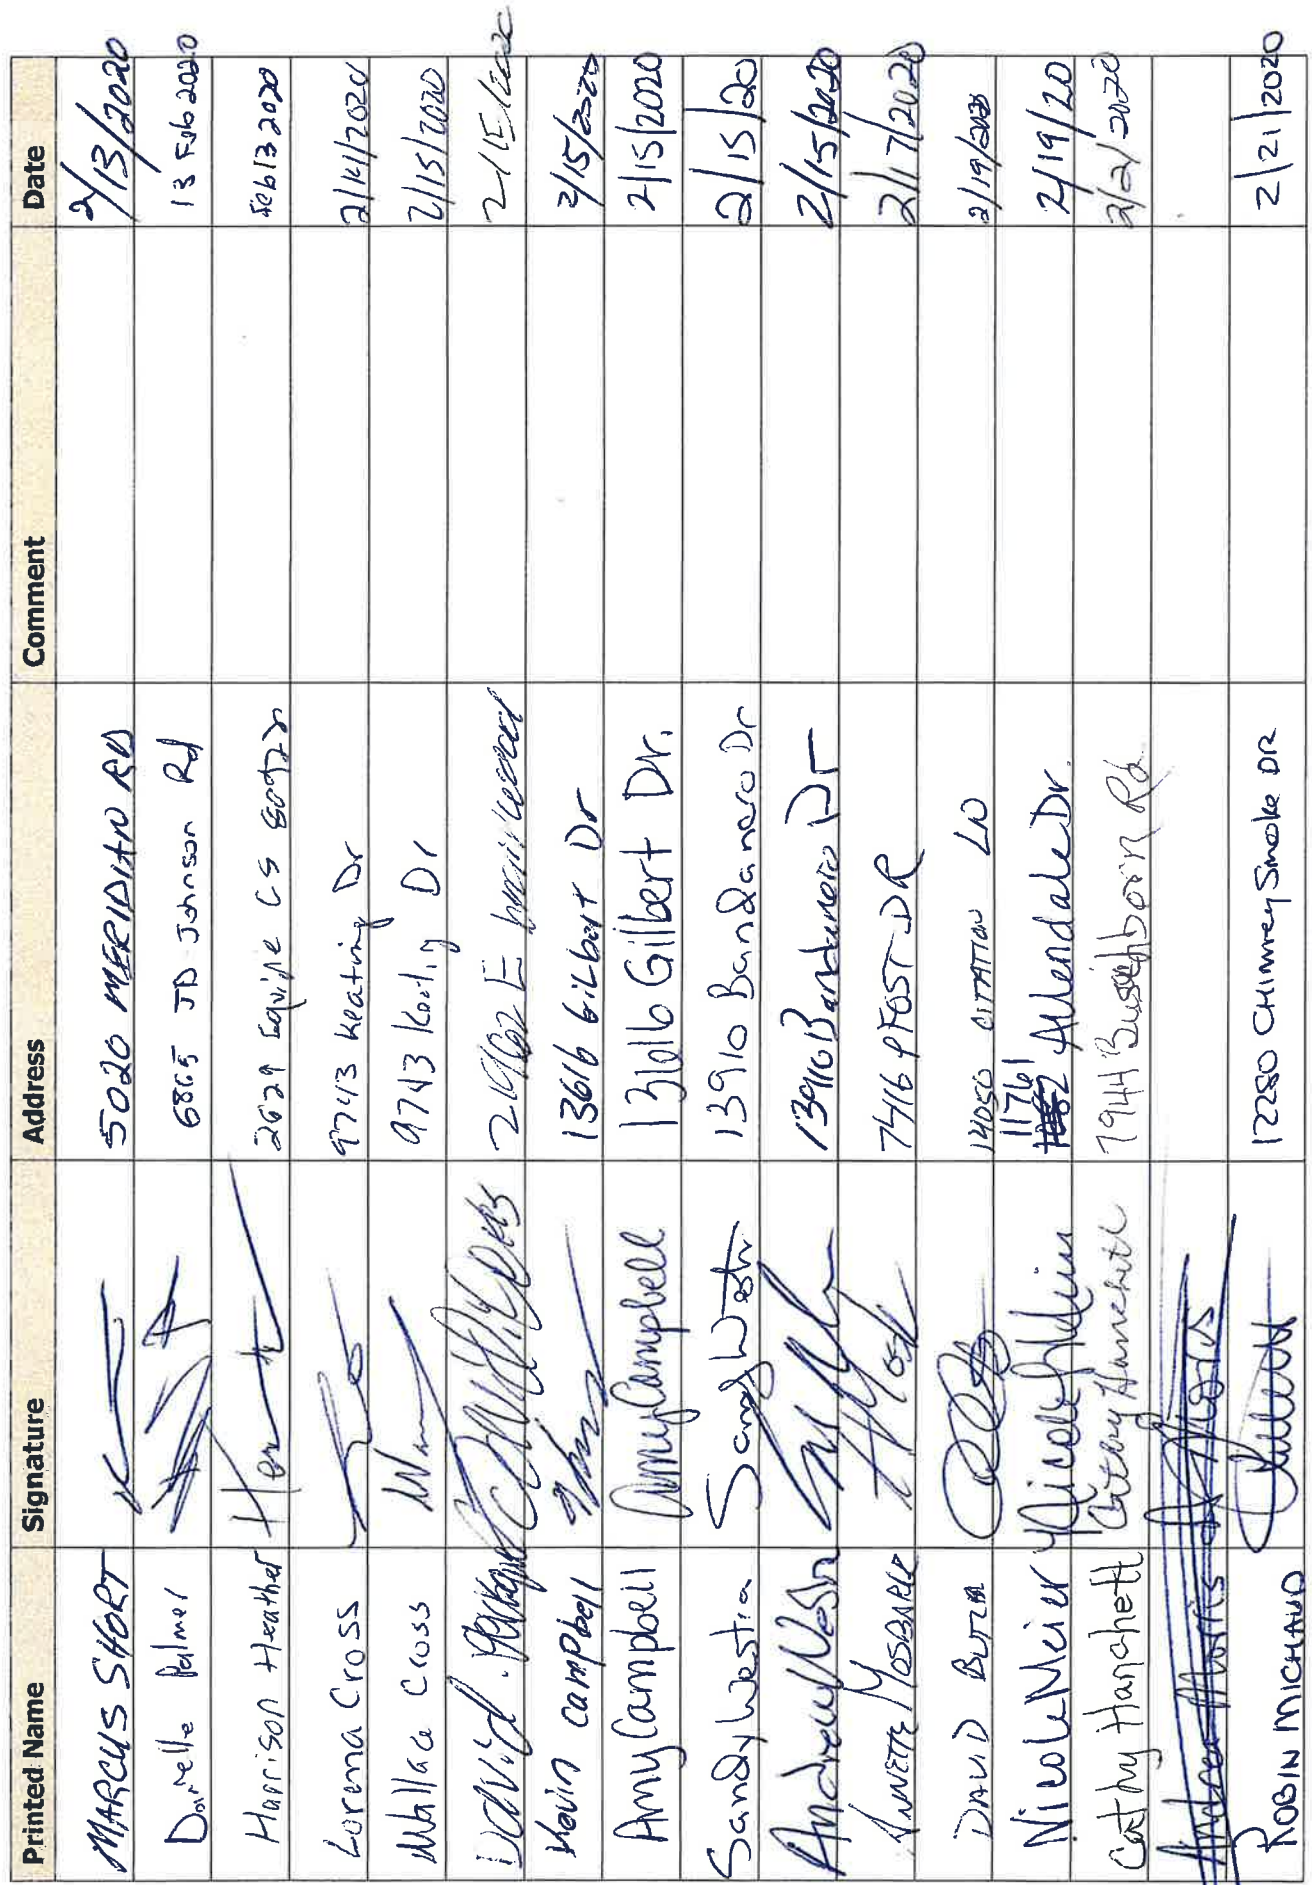 Printed Name Signature Address Comment Date
MARCUS SHORT 5020 MERIDIAN RD 2/13/2020
Danielle Palmer 6865 JD Johnson Rd 13 Feb 2020
Harrison Heather 2629 Equine CS 80922 Feb 13 2020
Lorena Cross 9743 Keating Dr 2/14/2020
Wallace Cross 9743 Dr 2/15/2020
David
Kevin Campbell 13616 Gilbert Dr 2/15/2020
Amy Campbell Amy Campbell 13616 Gilbert Dr. 2/15/2020
Sandy Westin Sandy Westin 13910 Bandanero Dr 2/15/20
Andrew Westin 13910 Bandanero Dr 2/15/2020
Annette Mosbarger 7416 PFOST DR 2/17/2020
DAVID 14050 CITATION LN 2/19/2020
Nicole Meier 11761 Allendale Dr. 2/19/20
Cathy Hanchett Cathy Hanchett 7944 Rd 2/21/2020
Andrea Morris
ROBIN MICHAUD 12280 CHIMNEY Smoke DR 2/21/2020